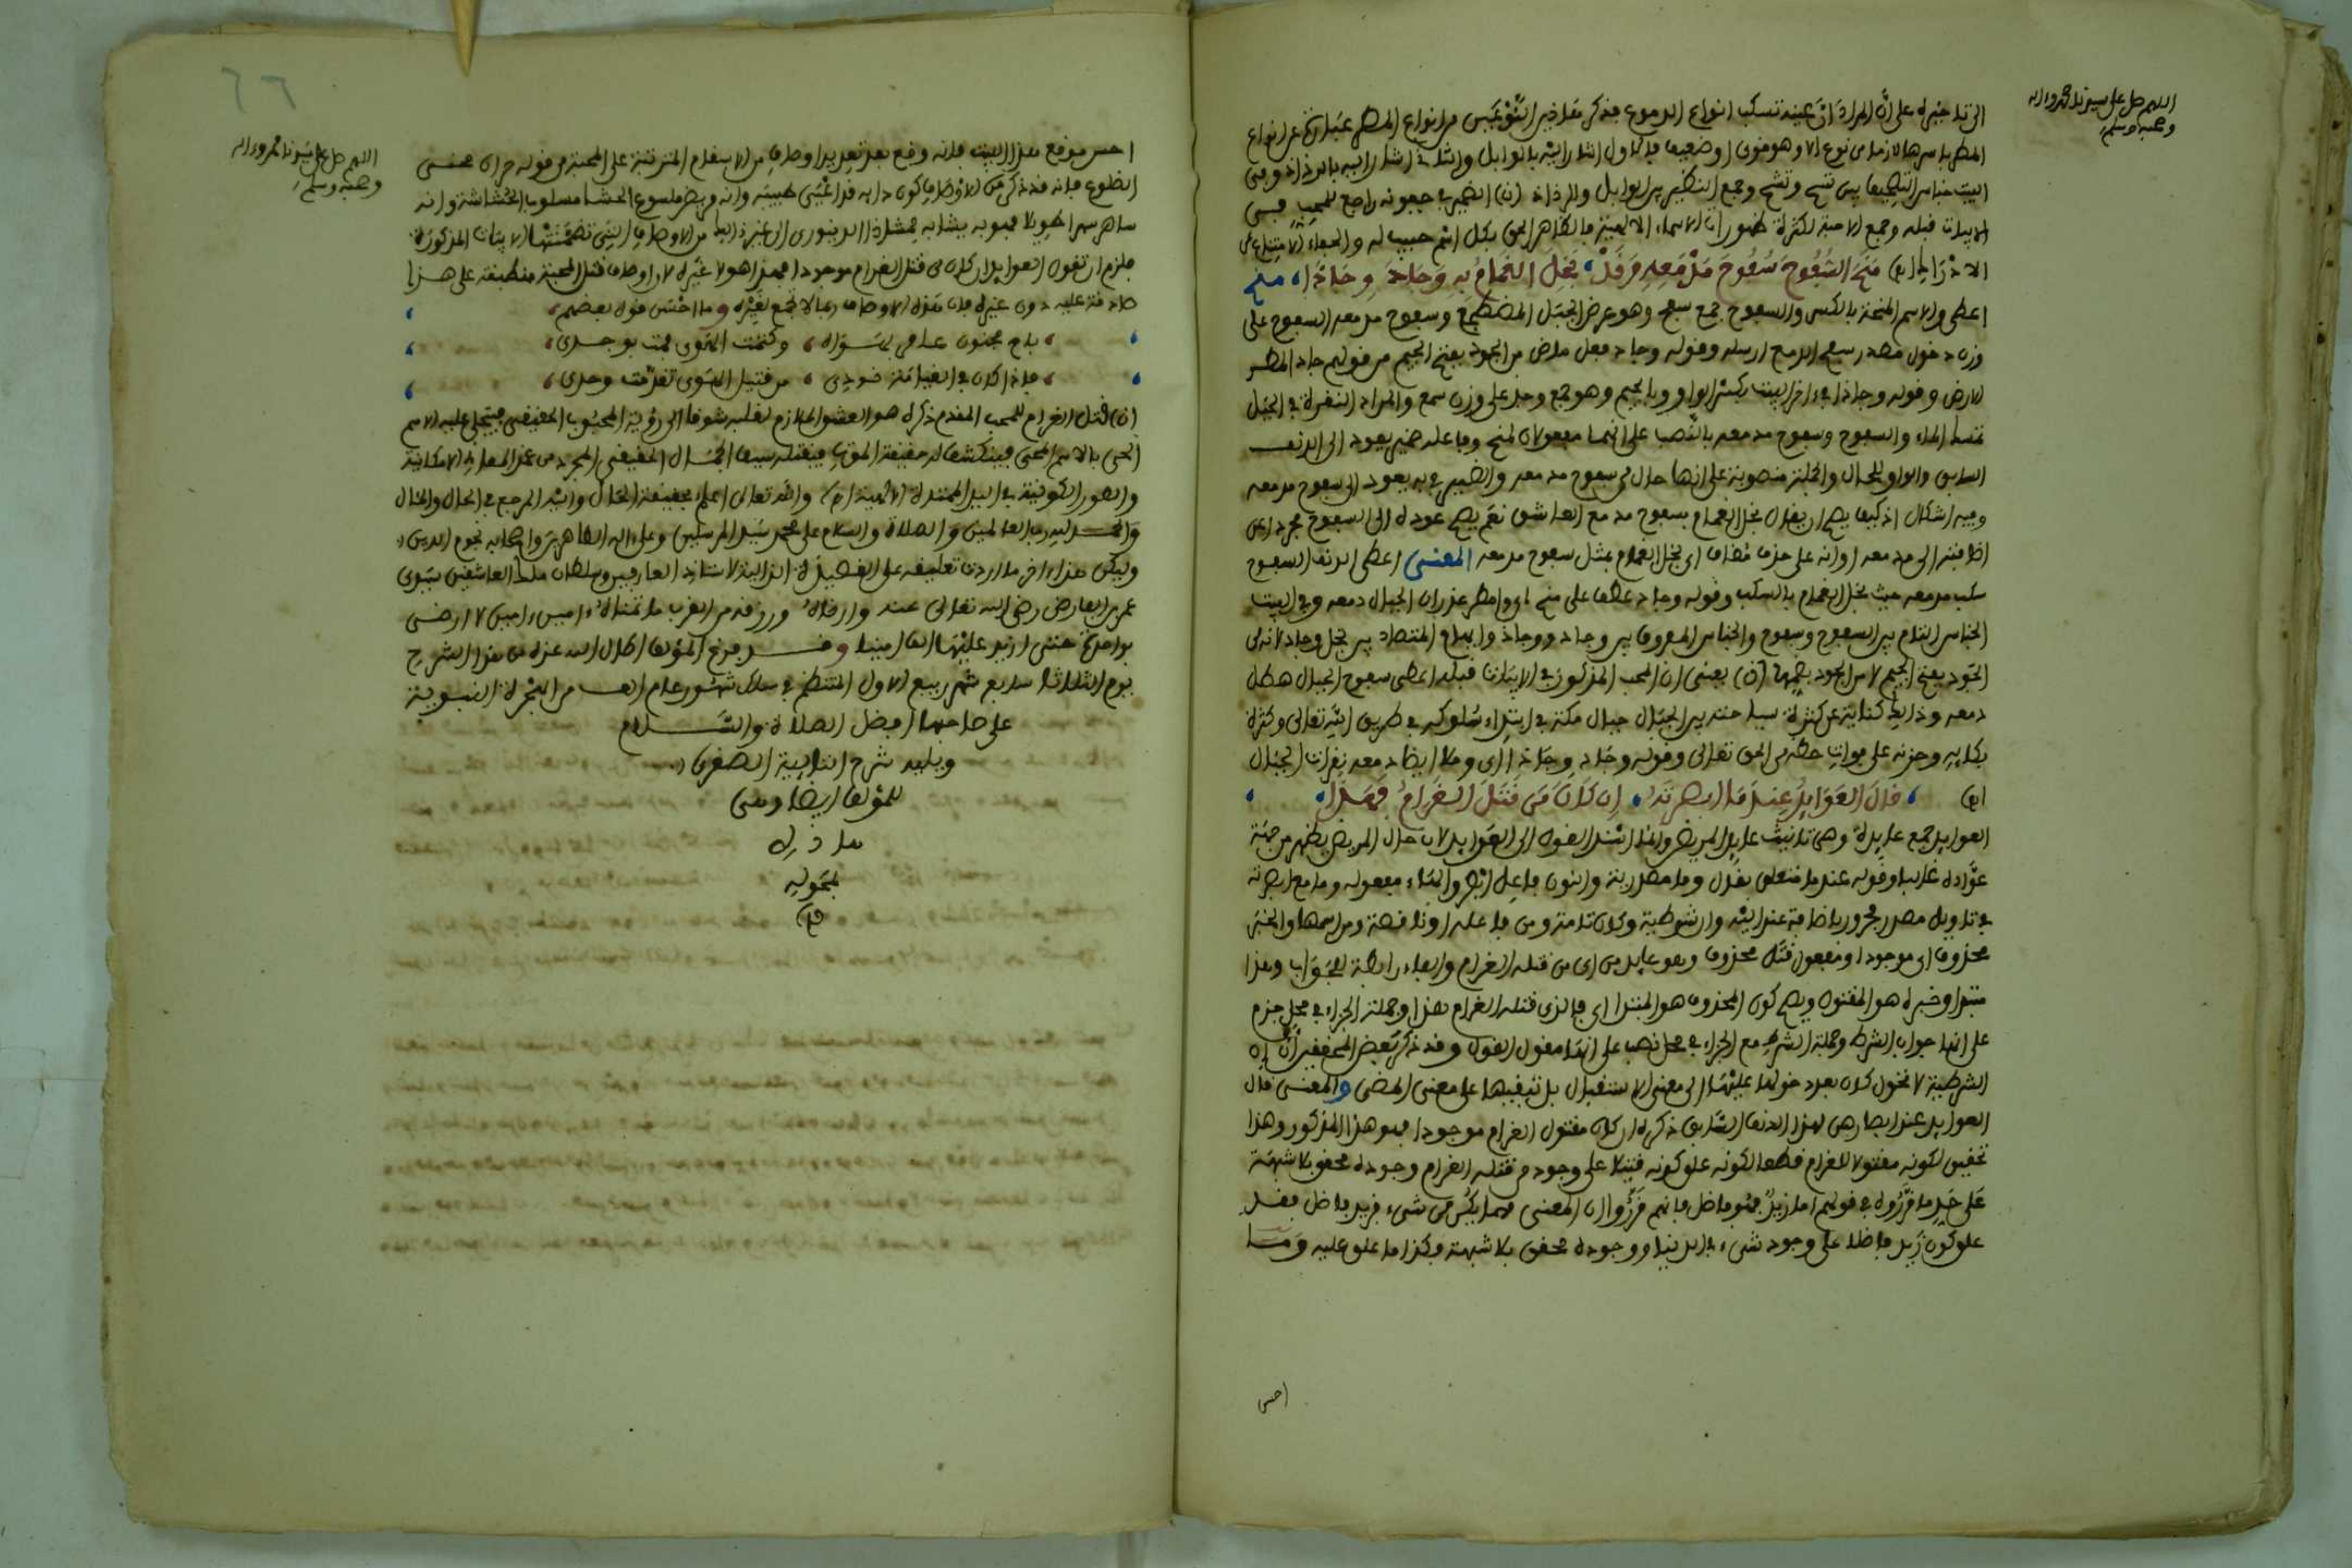 اللهم صل على سيدنا محمد وءاله
وصحبه وسلم
المطر باسرها لازما من نوع الا وهو منون او ضعيف
البيت جناس التصحيف بين تسح وتشح وجمع النظير بين الوابل والرذاذ (ن) الضمير في جفونه راجع للمحب
الابيات قبله وجمع الاحبة لكثرة ظهورات الاسماء الالهية فالظاهر الحق بكل اسم حبيب له
منح السفوح سفوح مدمعه وقد، بخل الغمام به وجاد وجاذا، منح
اعطى والاسم المنحة بالكسر والسفوح جمع سفح وهو عرض الجبل المضطجع وسفوح مدمعه السفوح على
وزن دخول مصدر سفح الدمع ارسله وقوله وجاد فعل ماض من الجود بفتح الجيم من قولهم جاد المطر
الارض وقوله وجاذا في اخر البيت بكسر الواو وبالجيم وهو جمع وجذ على وزن سمع والمراد النقرة في الجبل
تمسك الماء والسفوح وسفوح مدمعه بالنصب على انهما مفعولان لمنح وفاعله ضمير يعود الى الدنف
السابق والواو للحال والجملة منصوبة على انها حال من سفوح مدمعه والضمير في به يعود الى سفوح مدمعه
وفيه اشكال اذ كيف يصح ان يقال بخل الغمام بسفوح مدمع العاشق نعم يصح عوده الى السفوح مجردا عن
اضافته الى مدمعه او انه على حذف مضاف اي بخل الغمام بمثل سفوح مدمعه المعنى اعطى الدنف السفوح
سكب مدمعه حيث بخل الغمام بالسكب وقوله وجاد عطف على منح اي وامطر غدران الجبال دمعه وفي البيت
الجناس التام بين السفوح وسفوح والجناس المعروف بين وجاد ووجاذ وايهام المتضاد بين بخل وجاد لانه من
الجود بفتح الجيم لا من الجود بضمها (ن) يعني ان المحب المذكور في الابيات قبله اعطى سفوح الجبال هطل
دمعه وذلك كناية عن كثرة سياحته بين الجبال جبال مكة في ابتداء سلوكه في طريق الله تعالى وكثرة
بكايه وحزنه على فوات حظه من الحق تعالى وقوله وجاد وجاذا اي وملا ايضا دمعه نقرات الجبال
قال العوايد عندما ابصرنه، ان كان من قتل الغرام فهذا،
العوايد جمع عايدة وهي تانيث عايد المريض وانما اسند القول الى العوايد لان حال المريض يظهر من جهة
عواده غالبا وقوله عندما متعلق بقال وما مصدرية والنون فاعل ابصر والهاء مفعوله وما مع ابصرنه
في تاويل مصدر مجرور باضافة عند اليه وان شرطية وكان تامة ومن فاعله او ناقصة ومن اسمها والخبر
محذوف اي موجودا ومفعول قتل محذوف وهو عايد من اي من قتله الغرام والفاء رابطة للجواب وهذا
مبتدا وخبره هو المقتول ويصح كون المحذوف هو المبتدا اي فالذي قتله الغرام هذا وجملة الجزاء في محل جزم
على انها جواب الشرط وجملة الشرط مع الجزاء في محل نصب على انها مقول القول وقد ذكر بعض المحققين ان ان
الشرطية لا تحول كان بعد دخولها عليها الى معنى الاستقبال بل تبقيها على معنى المضي والمعنى قال
العوايد عند ابصارهن لهذا الدنف السابق ذكره ان كان مقتول الغرام موجودا فهو هذا المذكور وهذا
تحقيق لكونه مقتولا للغرام قطعا لكونه علق كونه قتيلا على وجود من قتله الغرام وجوده محقق بلا شبهة
على حد ما قرروه في قولهم اما زيد فهو فاضل فانهم قرروا ان المعنى مهما يكن من شيء فزيد فاضل فقد
علق كون زيد فاضلا على وجود شيء في الدنيا ووجوده محقق بلا شبهة وكذا ما علق عليه وما
احسن
٦٦
اللهم صل على سيدنا محمد وءاله
وصحبه وسلم
احسن موقع هذا البيت فانه وقع بعد تعديد اوصاف من الاسقام المترتبة على المحبة
ساهر سهرا طويلا فهو به يشابه ممشاذ الدينوري الى غير ذلك من الاوصاف التي تضمنتها الابيات المذكورة
فلزم ان تقول العوايد ان كان من قتل الغرام موجودا فهذا هو لا غيره لان اوصاف قتل المحبة منطبقة على هذا
صادقة عليه دون غيره فان هذه الاوصاف ربما لا تجمع لغيره وما احسن قول بعضهم
باح مجنون عامر بهواه، وكتمت الهوى فمت بوجدي،
فاذا كان في القيامة نودي، من قتيل الهوى تقدمت وحدي،
(ن) قتل الغرام للمحب المقدم ذكره هو العشق الملازم لقلبه شوقا الى رؤية المحبوب الحقيقي فيتجلى عليه الاسم
والصور الكونية والله تعالى اعلم بحقيقة الحال واليه المرجع في الحال والمئال
والحمد لله رب العالمين والصلاة والسلام على محمد سيد المرسلين وعلى اله الطاهرين واصحابه نجوم الدين
وليكن هذا اخر ما اردت تعليقه على القصيدة الذالية لاستاذ العارفين وسلطان العاشقين سيدي
عمر بن الفارض رضي الله تعالى عنه وارضاه ورزقه من القرب ما تمناه ءامين ءامين لا ارضى
بواحدة حتى ازيد عليها الف امينا وقد فرغ المؤلف اطال الله عزه من هذا الشرح
يوم الثلاثا سابع شهر ربيع الاول المنتظم في سلك شهور عام الف من الهجرة النبوية
على صاحبها افضل الصلاة والسلام
ويليه شرح التايية الصغرى
للمؤلف ايضا وهي